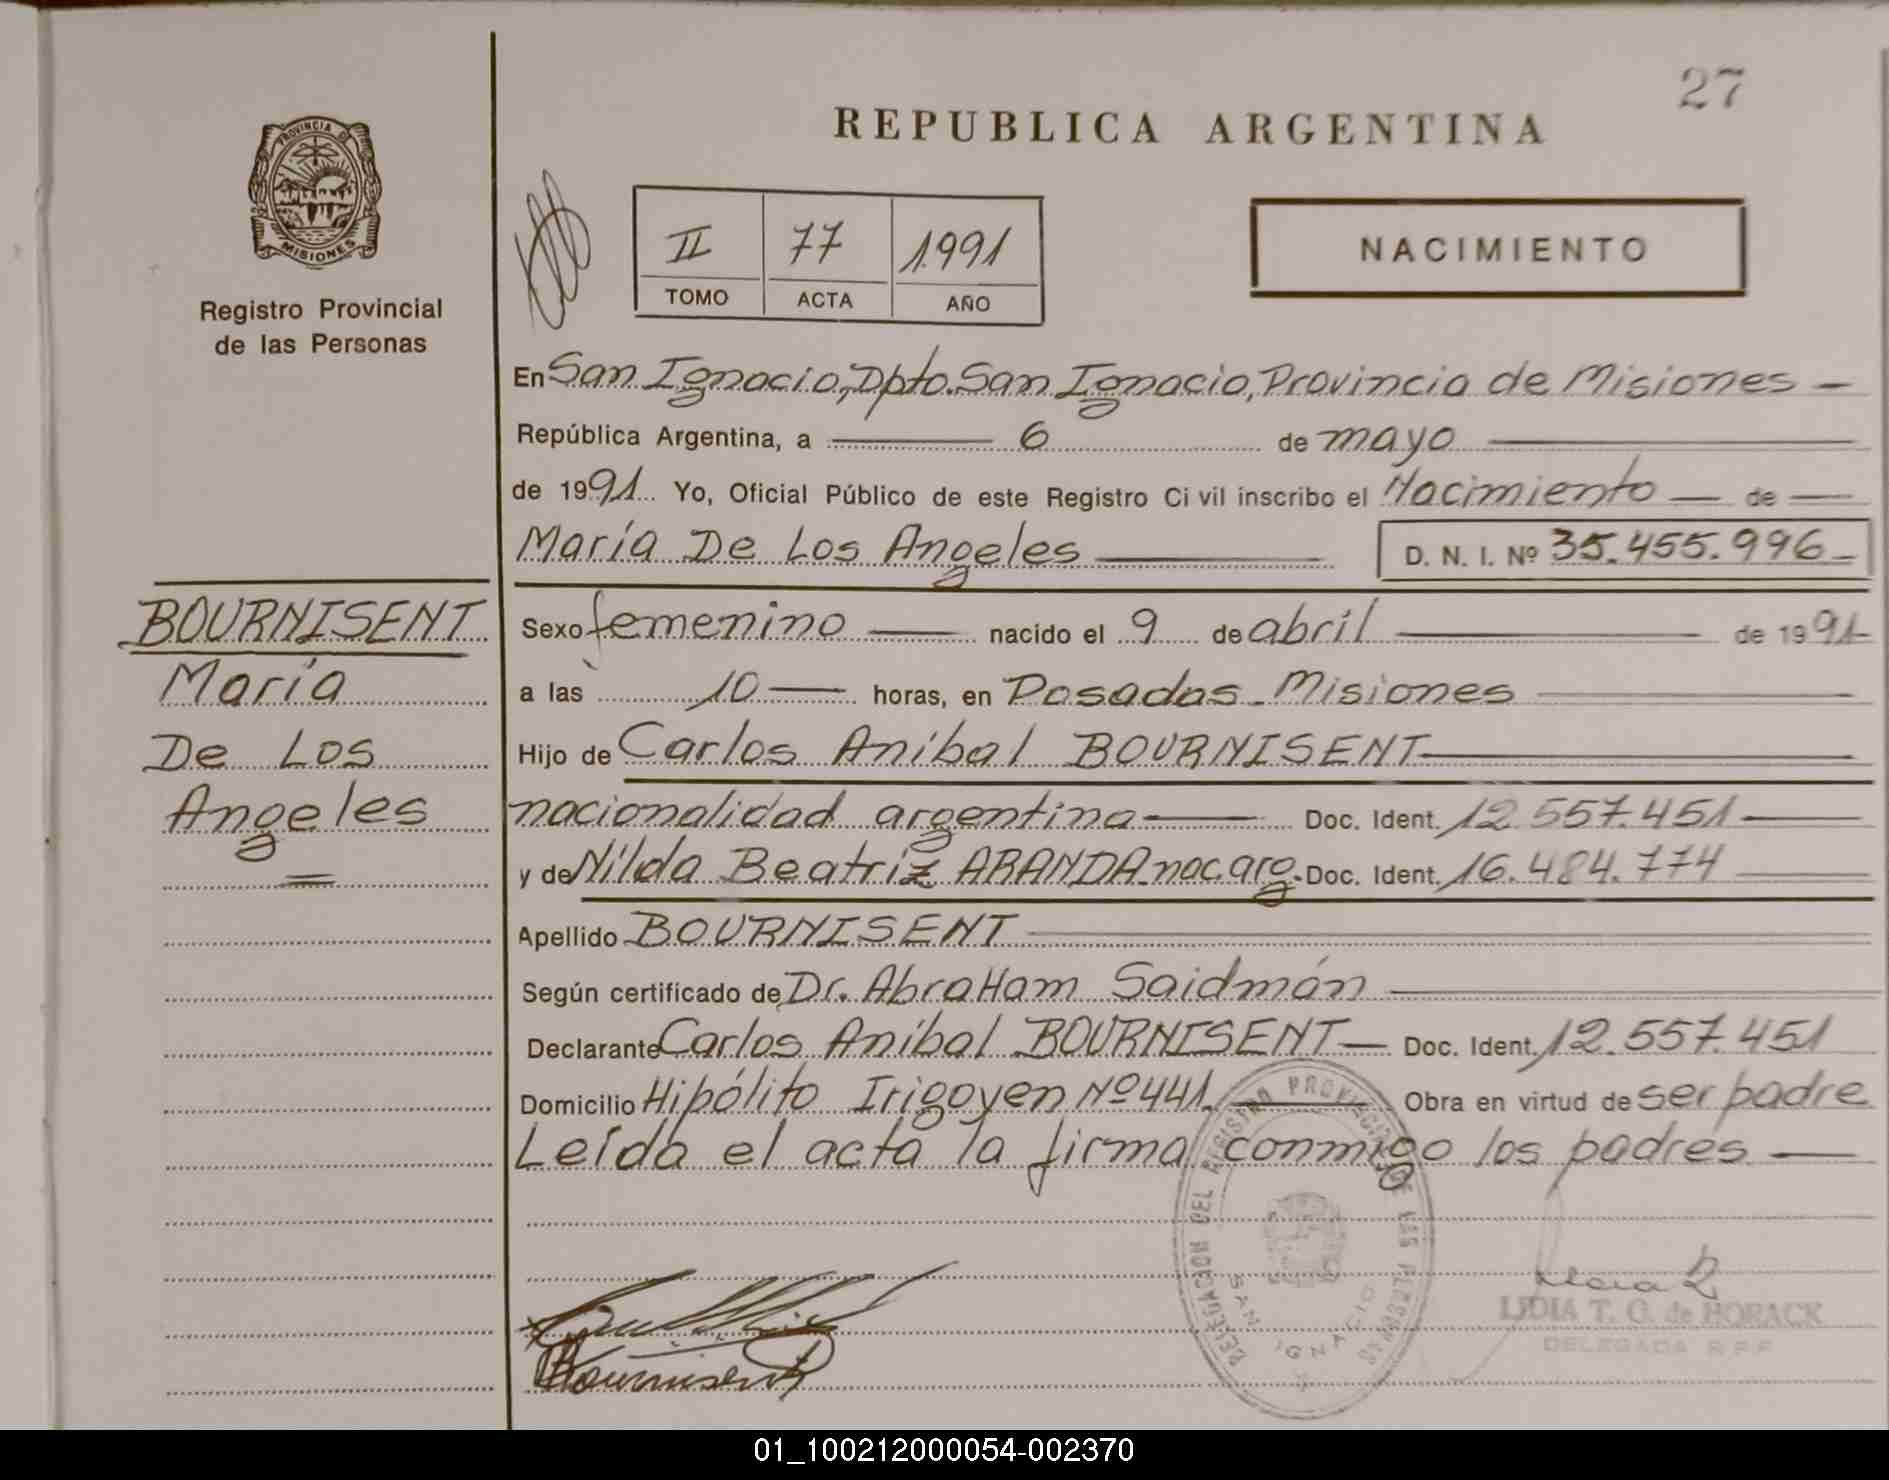 27
REPUBLICA ARGENTINA
PROVINCIA DE
MISIONES
Registro Provincial
de las Personas
II 77 1.991
TOMO ACTA AÑO
NACIMIENTO
En San Ignacio, Dpto. San Ignacio, Provincia de Misiones —
República Argentina, a — 6 de mayo —
de 1991. Yo, Oficial Público de este Registro Civil inscribo el Nacimiento — de —
María De Los Angeles — D. N. I. Nº 35.455.996-
BOURNISENT
María
De Los
Angeles
=
Sexo femenino — nacido el 9 de abril — de 1991-
a las 10 — horas, en Posadas - Misiones —
Hijo de Carlos Aníbal BOURNISENT —
nacionalidad argentina — Doc. Ident. 12.557.451 —
y de Nilda Beatriz ARANDA nac. arg. Doc. Ident. 16.484.774 —
Apellido BOURNISENT —
Según certificado de Dr. AbraHam Saidmán —
Declarante Carlos Aníbal BOURNISENT — Doc. Ident. 12.557.451
Domicilio Hipólito Irigoyen Nº 441. — Obra en virtud de ser padre
Leída el acta la firma conmigo los padres —
DELEGACION DEL REGISTRO PROVINCIAL DE LAS PERSONAS
SAN IGNACIO
Bournisent
LIDIA T. G. de HORACK
DELEGADA R.P.P.
01_100212000054-002370